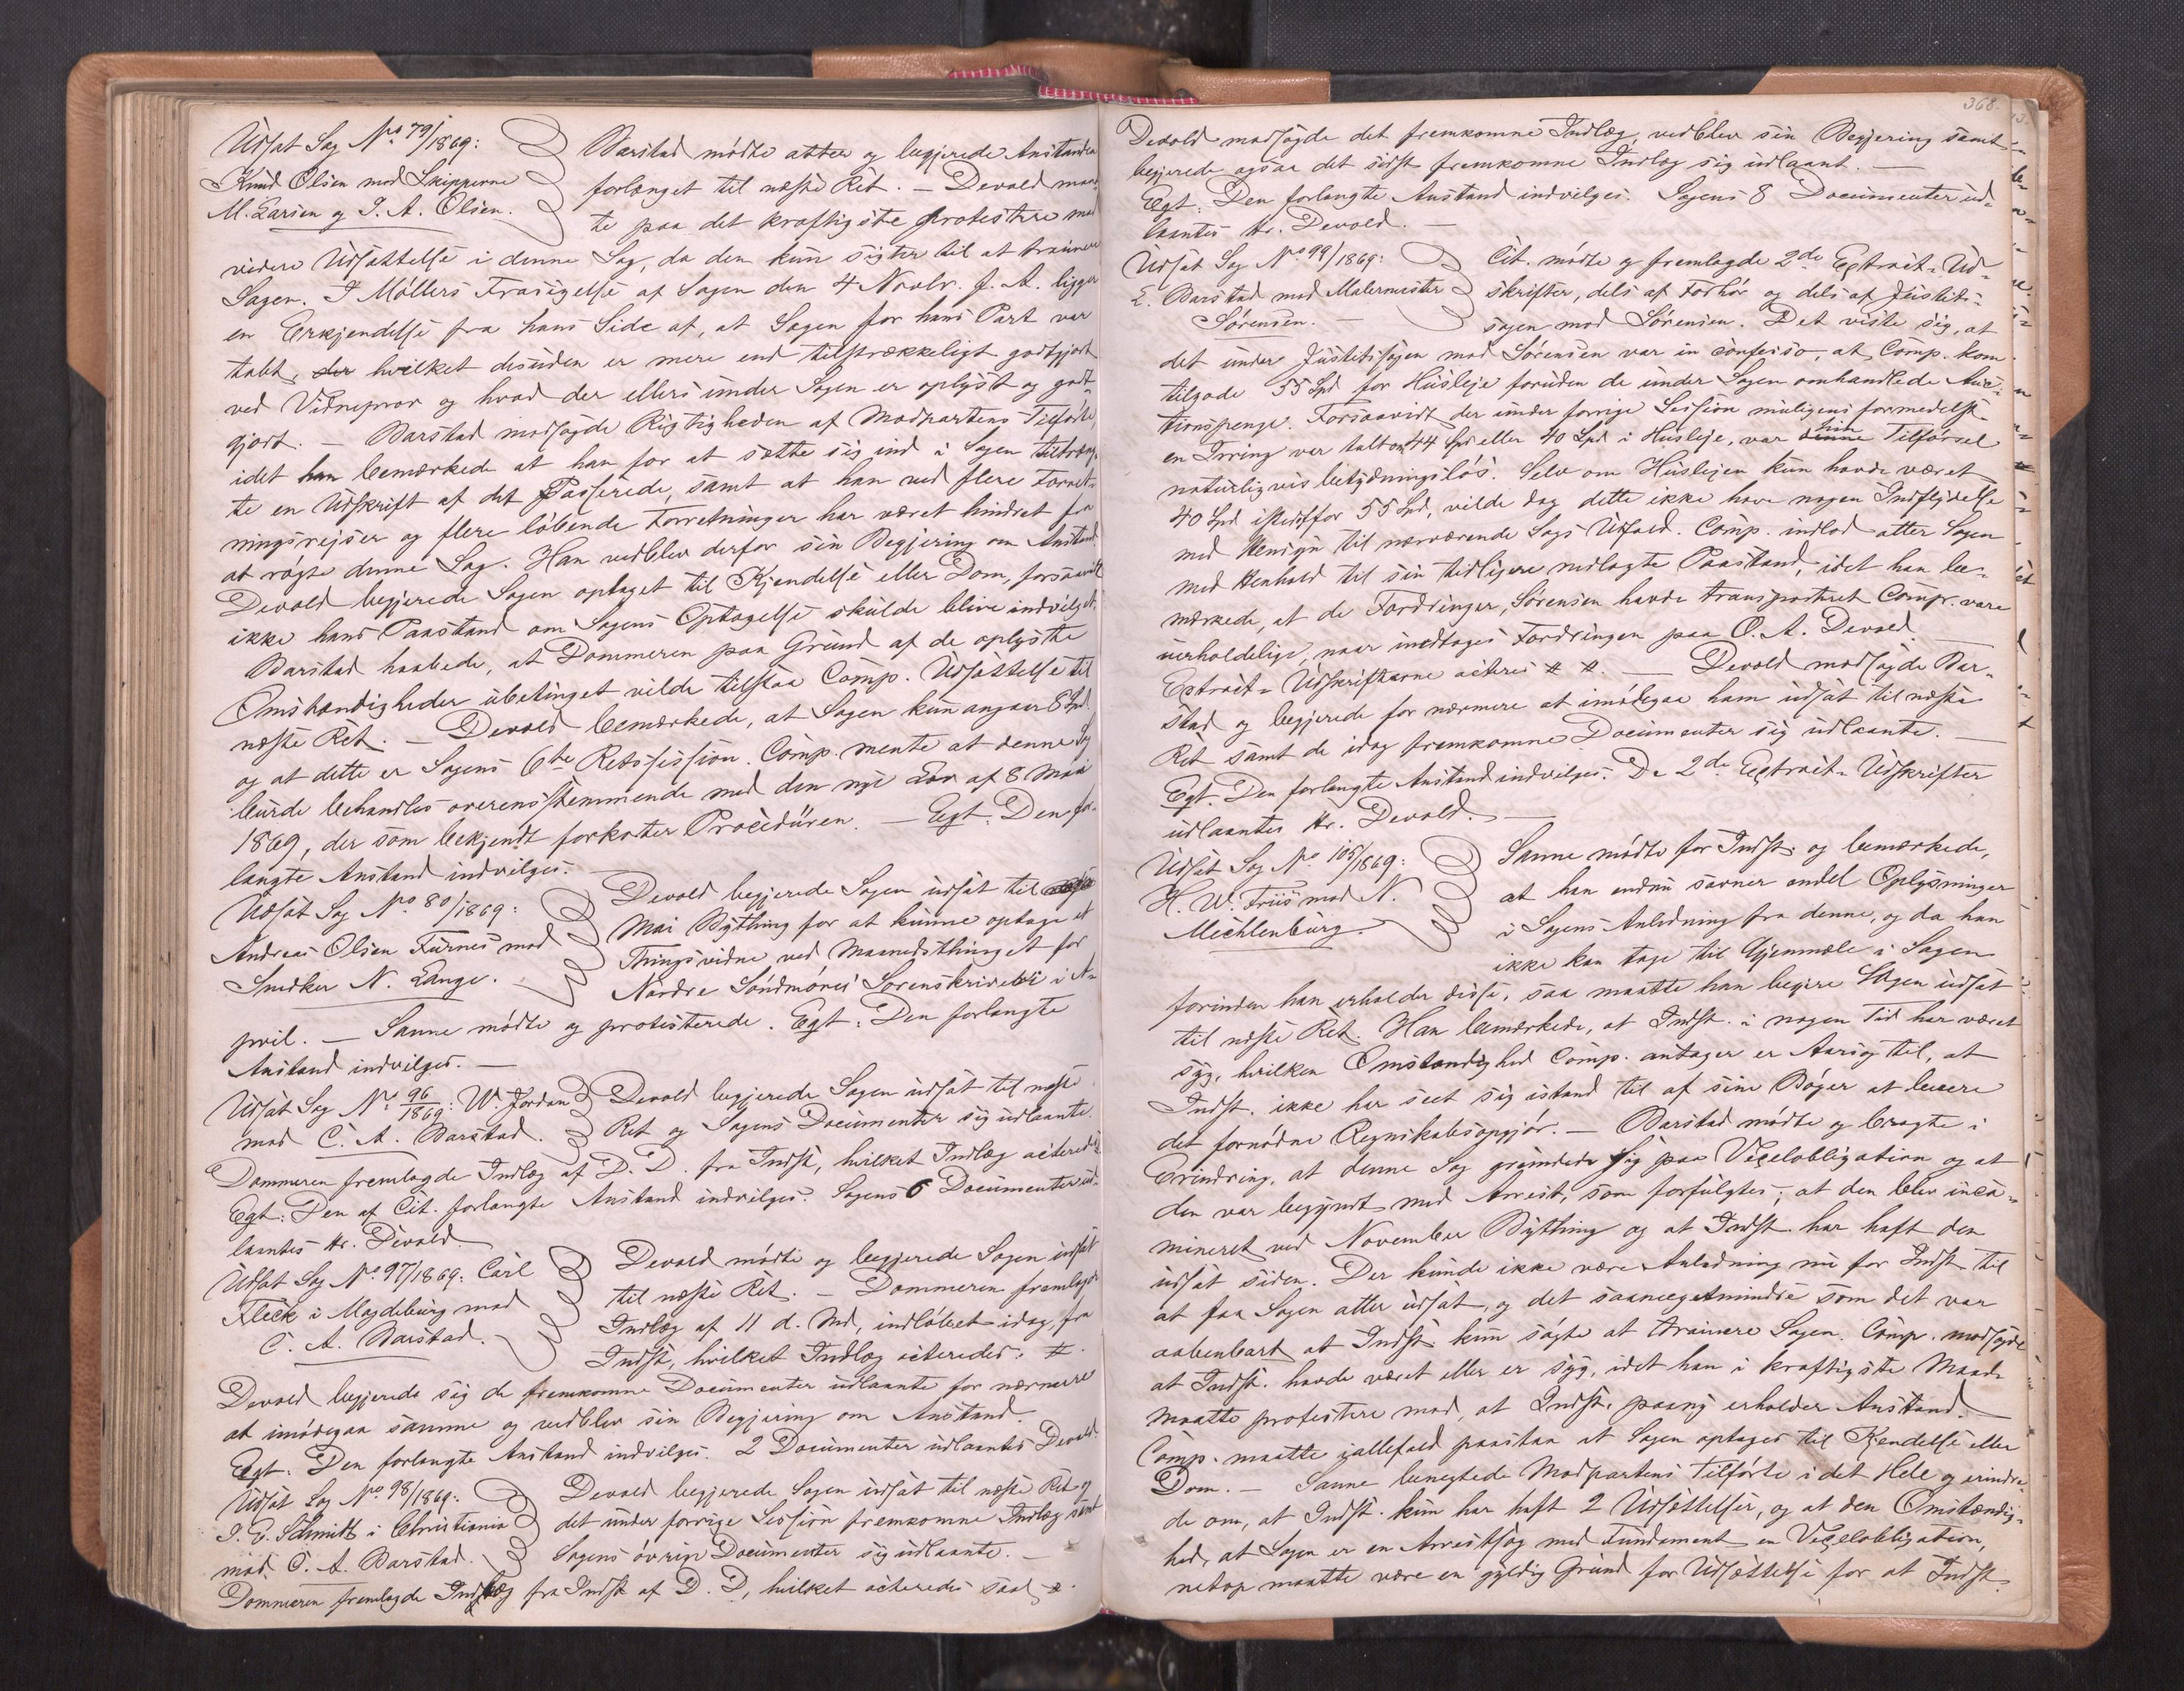 Udsat Sag No 79/1869:
Knud Olsen mod Skipperne
M. Larsen og J. A. Olsen.
Barstad mödte atter og begjerede Anstanden
forlænget til næste Ret. – Devold maat-
te paa det kraftigste protestere mod
videre Udsættelse i denne Sag, da den kun sigter til at trainere
Sagen. I Möllers Frasigelse af Sagen den 4 Novbr. f. A. ligger
en Erkjendelse fra hans Side af, at Sagen for hans Part var
tabt, hvilket desuden er mere end tilstrækkeligt godtgjort
ved Vidneprov og hvad der ellers under Sagen er oplyst og godt-
gjort. – Barstad modsagde Rigtigheden af Modpartens Tilförte,
idet han bemærkede at han for at sætte sig ind i Sagen tiltræng-
te en Udskrift af det Passerede, samt at han ved flere Forret-
ningsrejser og flere löbende Forretninger har været hindret fra
at rögte denne Sag. Han vedblev derfor sin Begjering om Anstand.
Devold begjerede Sagen optaget til Kjendelse eller Dom, forsaavidt
ikke hans Paastand om Sagens Optagelse skulde blive indvilget.
Barstad haabede, at Dommeren paa Grund af de oplyste
Omstændigheder ubetinget vilde tilstaa Comp. Udsættelse til
næste Ret. – Devold bemærkede, at Sagen kun angaar 8 Spd.
og at dette er Sagens 6te Retssession. Comp. mente at denne Sag
burde behandles overensstemmende med den nye Lov af 8 Mai
1869, der som bekjendt forkorter Proceduren. – Egt: Den for-
langte Anstand indvilges.
Udsat Sag No 80/1869:
Andreas Olsen Furnes mod
Snedker N. Lange.
Devold begjerede Sagen udsat til
Mai Bything for at kunne optage et
Thingsvidne ved Maanedsthinget for
Nordre Söndmöres Sorenskriveri i A-
pril. – Sanne mödte og protesterede. Egt: Den forlangte
Anstand indvilges. –
Udsat Sag No 96/1869: W. Jordan
mod C. A. Barstad.
Devold begjerede Sagen udsat til næste
Ret og Sagens Documenter sig udlaante.
Dommeren fremlagde Indlæg af D. D. fra Indst, hvilket Indlæg acteredes
Egt: Den af Cit. forlangte Anstand indvilges. Sagens 6 Documenter ud-
laantes Hr. Devold.
Udsat Sag No 97/1869: Carl
Fleck i Magdeburg mod
C. A. Barstad.
Devold mödte og begjerede Sagen udsat
til næste Ret. – Dommeren fremlagde
Indlæg af 11 d. Md, indlöbet idag, fra
Indst, hvilket Indlæg acteredes: #.
Devold begjerede sig de fremkomne Documenter udlaante for nærmere
at imödegaa samme og vedblev sin Begjering om Anstand.
Egt: Den forlangte Anstand indvilges. 2 Documenter udlaantes Devold.
Udsat Sag No 98/1869:
J. E. Schmidt i Christiania
mod C. A. Barstad.
Devold begjerede Sagen udsat til næste Ret og
det under forrige Session fremkomne Indlæg samt
Sagens övrige Documenter sig udlaante. –
Dommeren fremlagde Indlæg fra Indst af D. D, hvilket acteredes
368.
Devold modsagde det fremkomne Indlæg, vedblev sin Begjering samt
begjerede ogsaa det sidst fremkomne Indlæg sig udlaant. –
Egt: Den forlangte Anstand indvilges. Sagens 8 Documenter ud-
laantes Hr. Devold. –
Udsat Sag No 99/1869:
E. Barstad mod Malermester
Sörensen. –
Cit. mödte og fremlagde 2de Extract-Ud-
skrifter, dels af Forhör og dels af Justits-
sagen mod Sörensen. Det viste sig, at
det under Justitssagen mod Sörensen var in confesso, at Comp. kom
tilgode 55 Spd for Husleje foruden de under Sagen omhandlede Auc-
tionspenge. Forsaavidt der under forrige Session muligens formedelst
en Irring var talt om 44 Spd eller 40 Spd i Husleje, var denne Tilförsel
naturligvis betydningslös. Selv om Huslejen kun havde været
40 Spd istedetfor 55 Spd, vilde dog dette ikke have nogen Indflydelse
med Hensyn til nærværende Sags Udfald. Comp. indlod atter Sagen
med Henhold til sin tidligere nedlagte Paastand, idet han be-
mærkede, at de Fordringer, Sörensen havde transporteret Comp. vare
uerholdelige, naar undtages Fordringen paa O. A. Devold.
Extract-Udskrifterne acteres # #. – Devold modsagde Bar-
stad og begjerede for nærmere at imödegaa ham udsat til næste
Ret samt de idag fremkomne Documenter sig udlaante. –
Egt: Den forlangte Anstand indvilges. De 2de Extract-Udskrifter
udlaantes Hr. Devold. –
Udsat Sag No 105/1869:
H. W. Friis mod N.
Mechlenburg.
Sanne mödte for Indst. og bemærkede,
at han endnu savner endel Oplysninger
i Sagens Anledning fra denne, og da han
ikke kan tage til Gjenmæle i Sagen
forinden han erholder disse, saa maatte han begjere Sagen udsat
til næste Ret. Han bemærkede, at Indst. i nogen Tid har været
syg, hvilken Omstændighed Comp. antager er Aarsag til, at
Indst. ikke har seet sig istand til af sine Böger at levere
det fornödne Regnskabsopgjör. – Barstad mödte og bragte i
Erindring, at denne Sag grundede sig paa Vexelobligation og at
den var begyndt med Arrest, som forfulgtes; at den blev inca-
mineret ved November Bything og at Indst. har haft den
udsat siden. Der kunde ikke være Anledning nu for Indst. til
at faa Sagen atter udsat, og det saameget mindre som det var
aabenbart at Indst. kun sögte at trainere Sagen. Comp. modsagde
at Indst. havde været eller er syg, idet han i kraftigste Maade
maatte protestere mod, at Indst. paany erholder Anstand.
Comp. maatte iallefald paastaa at Sagen optages til Kjendelse eller
Dom. – Sanne benegtede Modpartens Tilförte i det Hele og erindre-
de om, at Indst. kun har haft 2 Udsættelser, og at den Omstændig-
hed, at Sagen er en Arrestsag med Fundament en Vexelobligation,
netop maatte være en gyldig Grund for Udsættelse for at Indst.